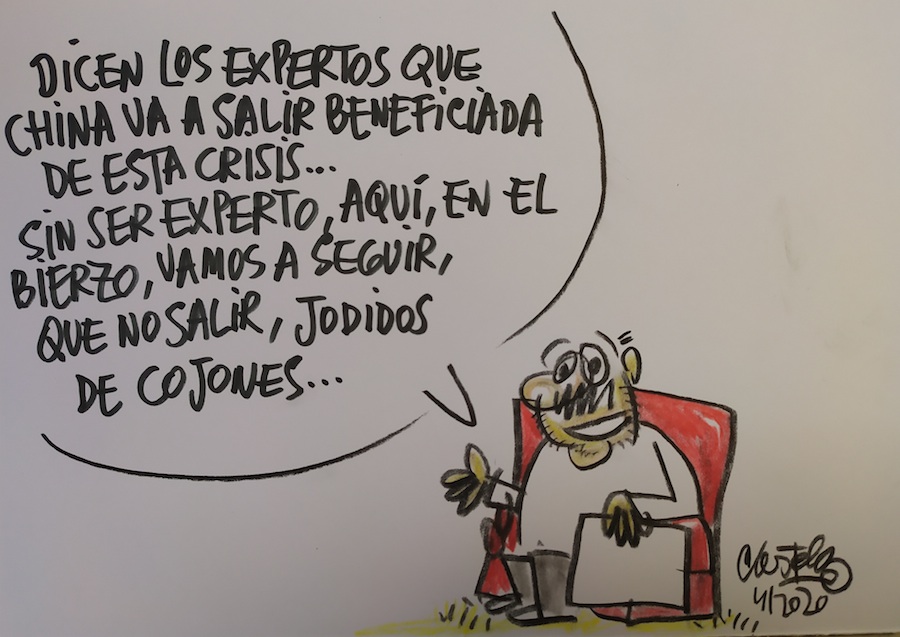 DICEN LOS EXPERTOS QUE
CHINA VA A SALIR BENEFICIADA
DE ESTA CRISIS...
SIN SER EXPERTO, AQUÍ, EN EL
BIERZO, VAMOS A SEGUIR,
QUE NO SALIR, JODIDOS
DE COJONES...
4/2020